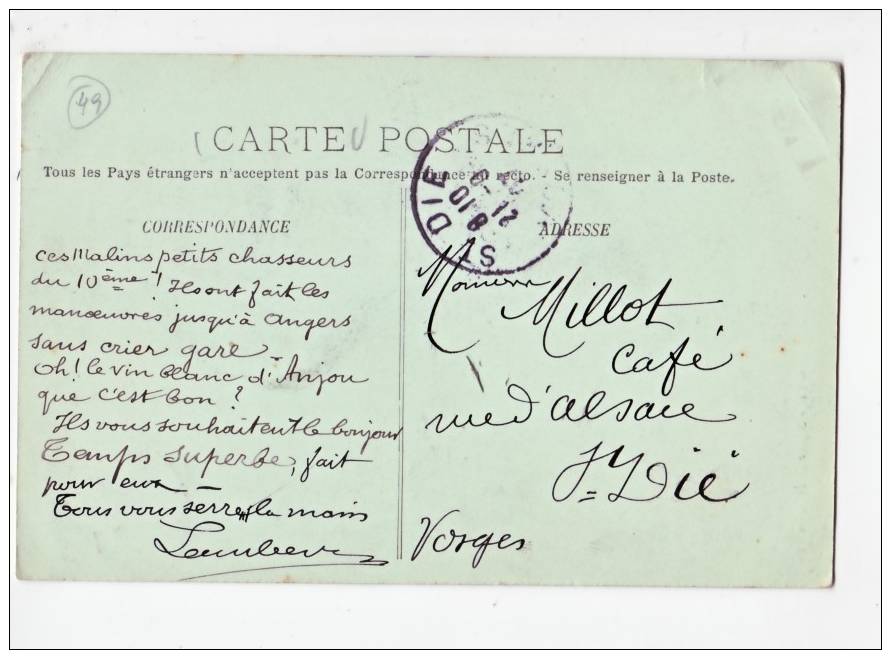 49
CARTE POSTALE
Tous les Pays étrangers n'acceptent pas la Correspondance au recto. - Se renseigner à la Poste.
ST DIE
CORRESPONDANCE
ces Malins petits chasseurs
du 10ème! Ils ont fait les
manœuvres jusqu'à Angers
sans crier gare
Oh! le vin blanc d'Anjou
que c'est bon?
Ils vous souhaitent le bonjour
Temps superbe, fait
pour eux
Tous vous serrent la main
ADRESSE
Monsieur Millot
Café
rue d'alsace
St Dié
Vosges